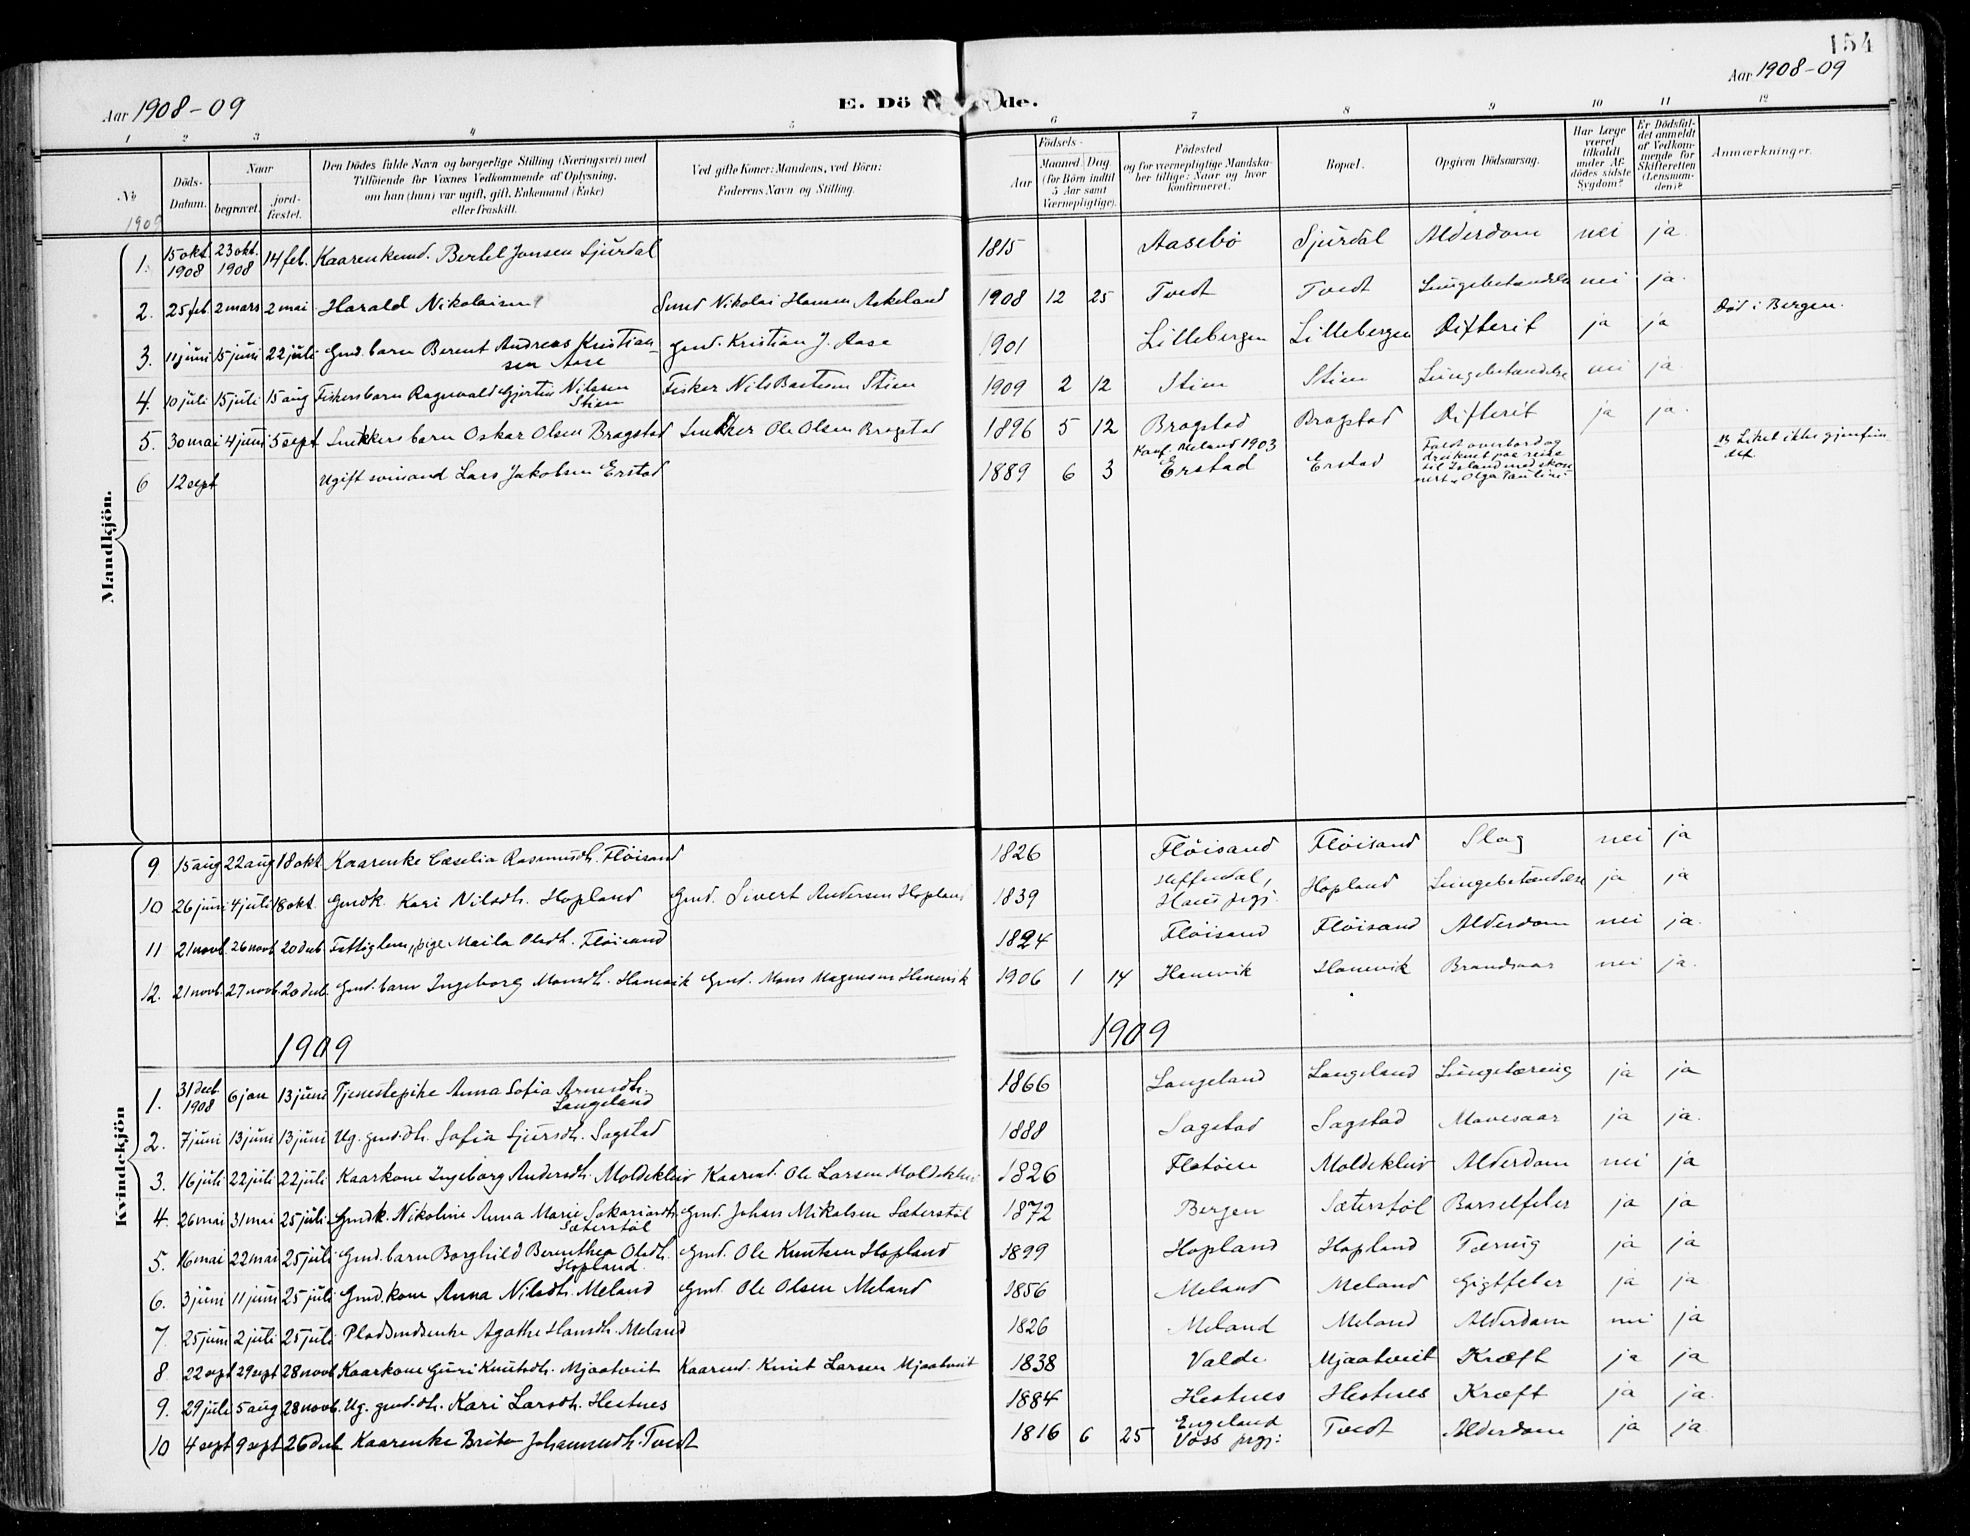 154
Aar 1908-09
E. Dö de.
Aar 1908-09
1 2 3 4 5 6 7 8 9 10 11 12
No
Döds-Datum.
Naar
begravet.
jord-fæstet.
Den Dödes fulde Navn og borgerlige Stilling (Næringsvei) med
Tilföiende for Voxnes Vedkommende af Oplysning,
om han (hun) var ugift, gift, Enkemand (Enke)
eller fraskilt.
Ved gifte Koner: Mandens, ved Börn:
Faderens Navn og Stilling.
Födsels-
Aar
Maaned
Dag
(for Börn indtil
5 Aar samt
Værnepligtige).
Födested
og for værnepligtige Mandska-
ber tillige: Naar og hvor
konfirmeret.
Bopæl.
Opgiven Dödsaarsag.
Har Læge
været
tilkaldt
under Af-
dödes sidste
Sygdom?
Er Dödsfal-
det anmeldt
af Vedkom-
mende for
Skifteretten
(Lensman-
den)?
Anmærkninger.
1909
Mandkjön.
1. 15 okt. 1908 23 okt. 1908 14 feb. Kaarenkemd. Bertel Jonsen Sjurdal 1815 Aasebö Sjurdal Alderdom nei ja
2. 25 feb. 2 mars 2 mai Harald Nikolaisen Smed Nikolai Hansen Askeland 1908 12 25 Tvedt Tvedt Lungebetændelse nei ja.
3. 11 juni 15 juni 22 juli Gmd. barn Berent Andreas Kristian-
sen Aase Gmd. Kristian J. Aase 1901 Lillebergen Lillebergen Difterit ja ja Död i Bergen.
4. 10 juli 15 juli 15 aug Fiskersbarn Ragnvald Gjertin Nilssen
Stien Fisker Nils Bertesen Stien 1909 2 12 Stien Stien Lungebetændelse nei ja.
5. 30 mai 4 juni 5 sept Snekkersbarn Oskar Olsen Bragstad Snekker Ole Olsen Bragstad 1896 5 12 Bragstad Bragstad Difterit ja ja.
6 12 sept Ugift sömand Lars Jakobsen Erstad 1889 6 3 Konf. Meland 1903
Erstad Erstad Faldt overbord og
druknet paa reise
til Island med skon-
nert "Olga Pauline" Liket ikke gjenfun-
det.
Kvindekjön
9 15 aug 22 aug 18 okt Kaarenke Cæselia Rasmusdh. Flöisand 1826 Flöisand Flöisand Slag nei ja
10 26 juni 4 juli 18 okt. Gmdk. Kari Nilsdh. Hopland Gmd. Sivert Andersen Hopland 1839 Haus prgj. Hopland Lungebetændelse ja ja
11 21 novb. 26 novb 20 decb Fattiglem, pige Maila Olsdh. Flöisand 1824 Flöisand Flöisand Alderdom nei ja.
12. 21 novb. 27 novb 20 decb. Gmd. barn Ingeborg Monsdh. Hanevik Gmd. Mons Magnesen Hanevik 1906 1 14 Hanevik Hanevik Brandsaar nei ja.
1909 1909
1. 31 decb. 1908 6 jan 13 juni Tjenestepike Anna Sofia Arnesdh.
Langeland 1866 Langeland Langeland Lungetæring ja ja
2. 7 juni 13 juni 13 juni Ug. gmd.dh. Sofia Sjursdh. Sagstad 1888 Sagstad Sagstad Mavesaar ja ja.
3. 16 juli 22 juli 22 juli Kaarkone Ingeborg Andersdh. Moldekleiv Kaarmd. Ole Larsen Moldekleiv 1826 Flatöen Moldekleiv Alderdom nei ja
4. 26 mai 31 mai 25 juli Gmdk. Nikoline Anna Marie Sakariasdh.
Sæterstöl Gmd. Johan Mikalsen Sæterstöl 1872 Bergen Sæterstöl Barselfeber ja ja
5. 16 mai 22 mai 25 juli Gmd. barn Borghild Berenthea Olsdh.
Hopland. Gmd. Ole Knutsen Hopland 1899 Hopland Hopland Tæring ja ja
6. 3 juni 11 juni 25 juli Gmd. kone Anna Nilsdh. Meland Gmd. Ole Olsen Meland 1856 Meland Meland Gigtfeber ja ja
7. 25 juni 2 juli 25 juli Pladsmdsenke Agathe Hansdh. Meland 1826 Meland Meland Alderdom nei ja
8 22 sept 29 sept 28 novb Kaarkone Guri Knutsdh. Mjaatveit Kaarmd. Knut Larsen Mjaatveit 1838 Valde Mjaatveit Kræft ja ja
9. 29 juli 5 aug 28 novb. Ug. gmd. dh. Kari Larsdh. Hestnes 1884 Hestnes Hestnes Kræft ja ja.
10 4 sept 9 sept 26 decb Kaarenke Brita Johannesdh. Tvedt 1816 6 25 Engeland
Voss prgj: Tvedt Alderdom ja ja